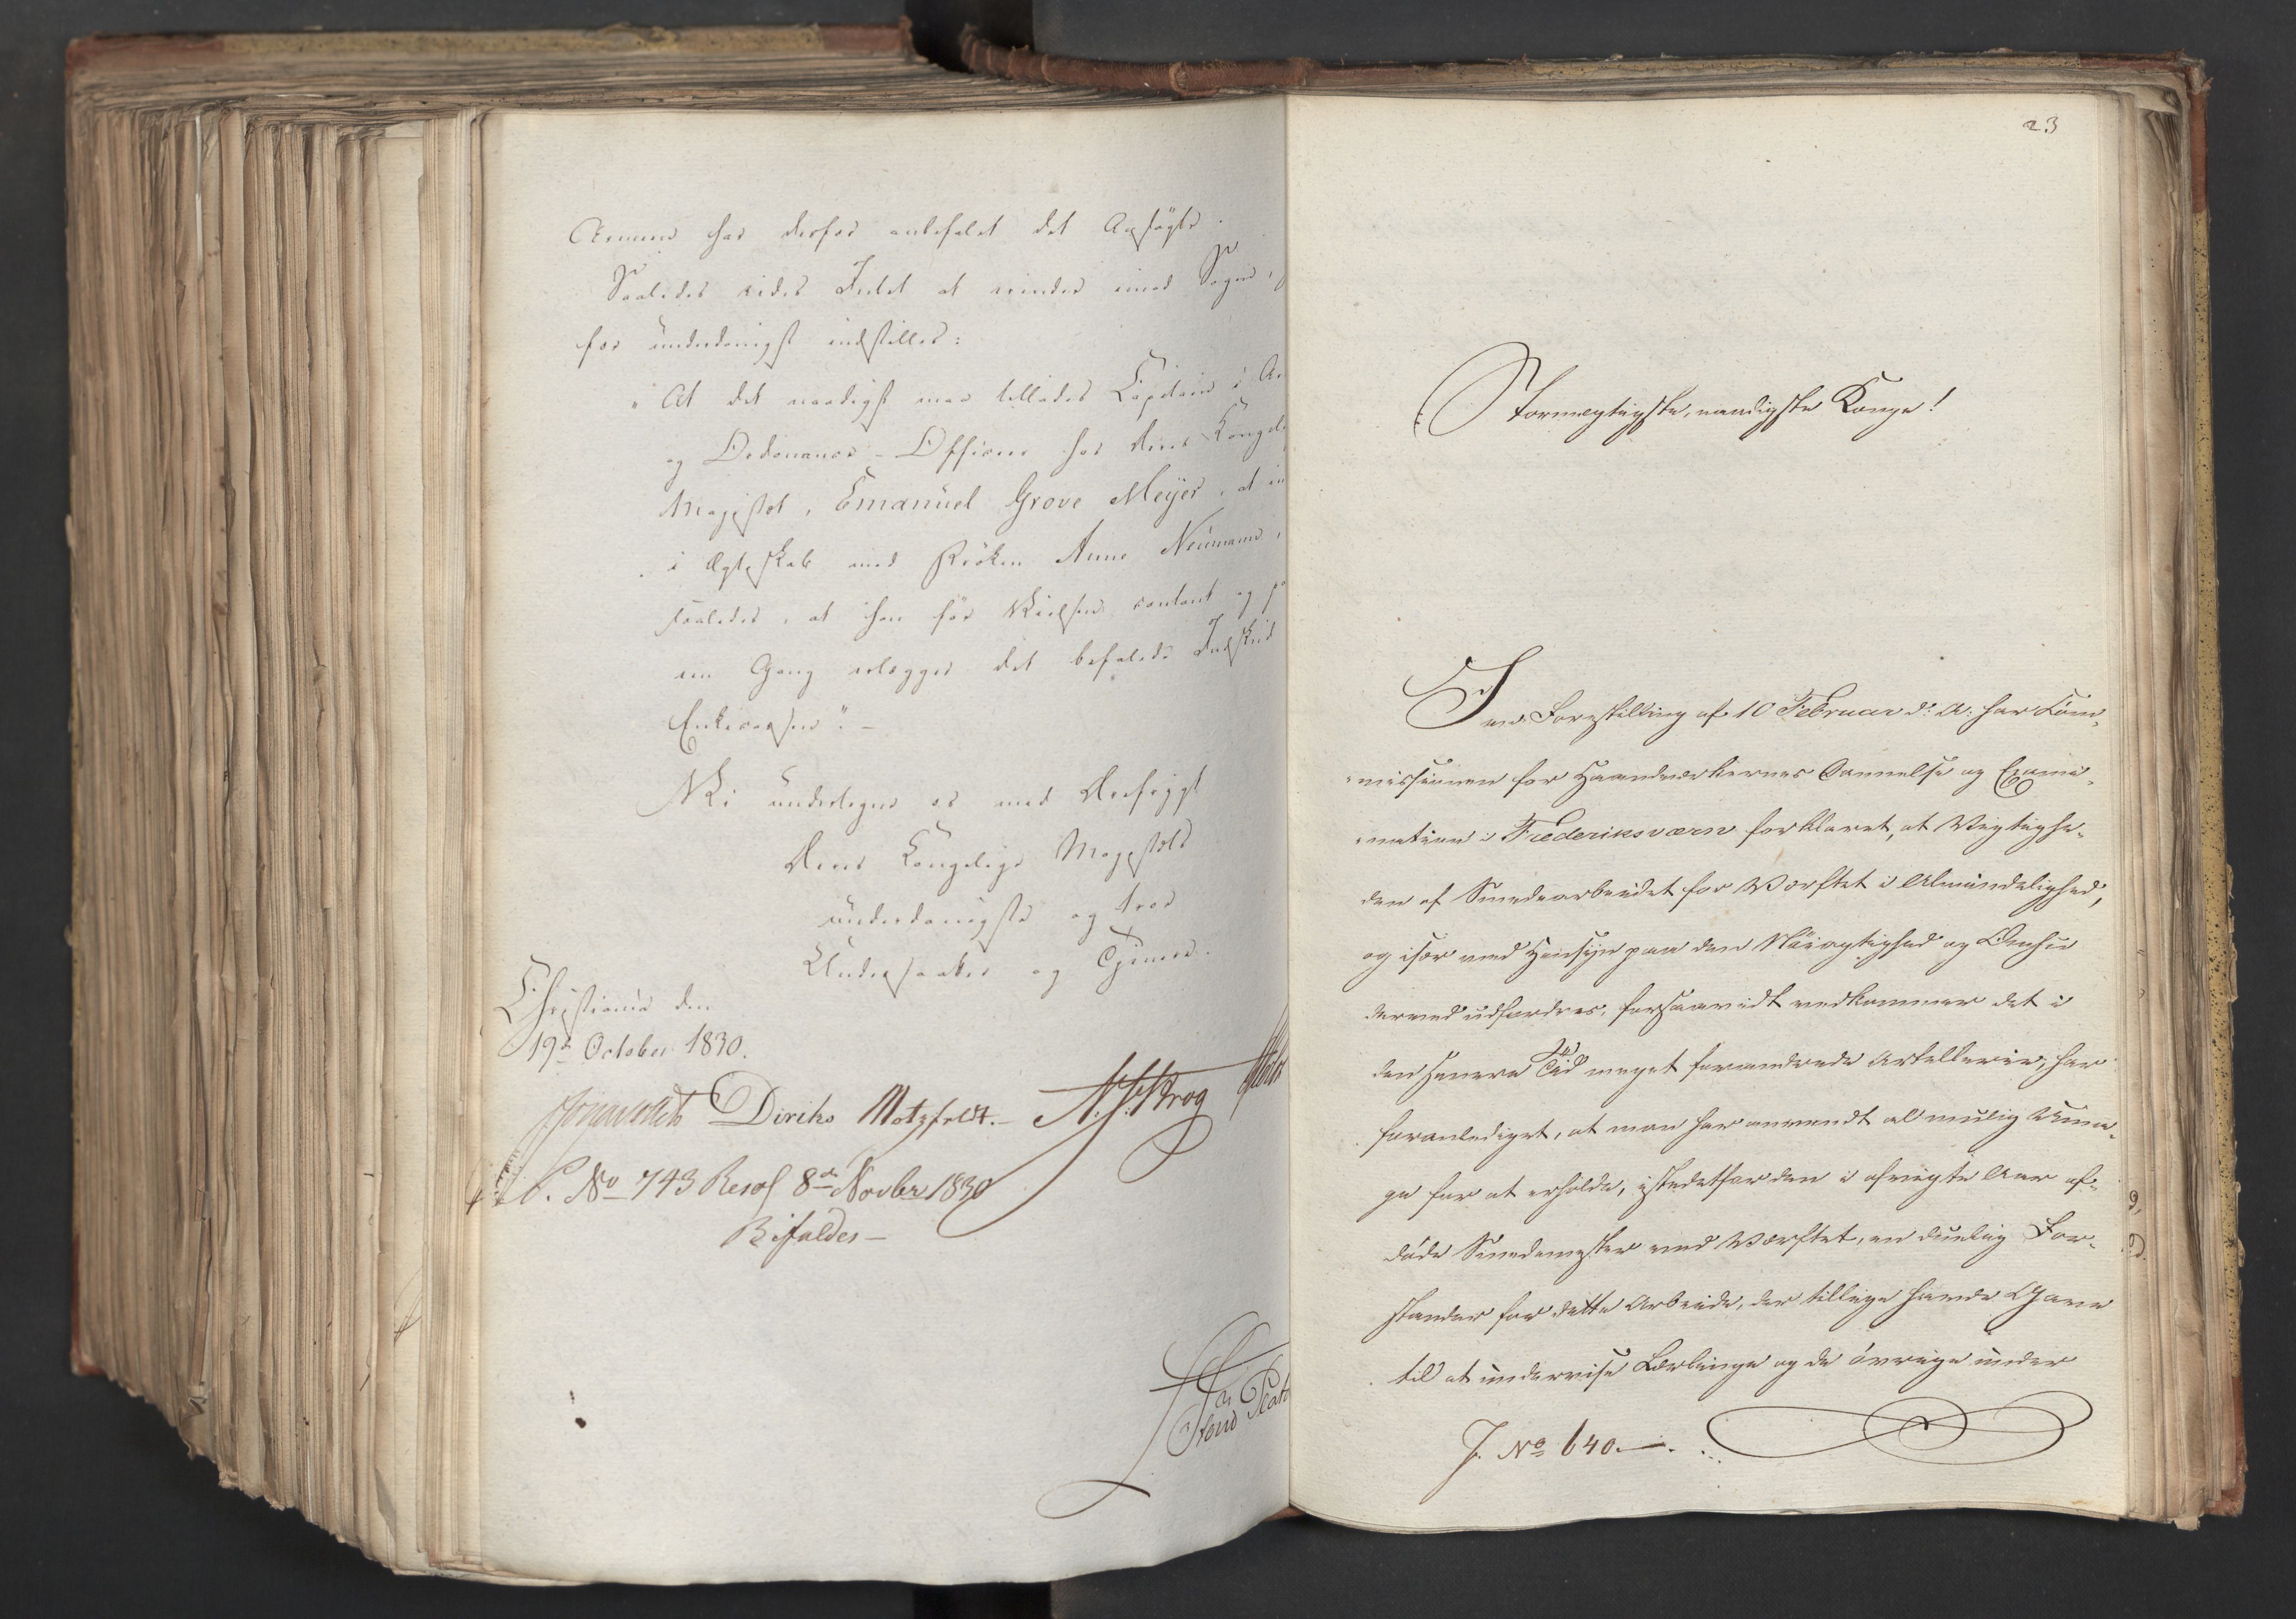 Armeen har derfor anbefalet det Ansøgte.
Saaledes vides Intet at erindre imod Sagen,
for underdanigst indstilles:
"At det naadigst maa tillades Capitain i Ar
og Ordonance-Officeer hos Deres Kongeli
Majestæt, Emanuel Grove Meyer, at in
i Ægteskab med Frøken Anne Neumann,
saaledes, at han før Vielsen contant og p
een Gang erlægger det befalede Indskud
Enkecassen". –
Vi undertegne os med Ærefrygt
Deres Kongelige Majestæts
underdanigste og troe
Undersaatter og Tjenere.
Christiania den
19de October 1830.
Diriks Motzfeldt. – N. J. Krog
P. No 743 Resol 8de Novbr 1830
Bifaldes –
23
Stormægtigste, naadigste Konge!
I en Forestilling af 10 Februar d: A: har Com-
missionen for Haandværkernes Dannelse og Exami-
nation i Frederiksværn forklaret, at Vigtighe-
den af Smedearbeidet for Værftet i Almindelighed,
og især med Hensyn paa den Nöiagtighed og Omhu
derved udfordres, forsaavidt vedkommer det i
den senere Tid meget forandrede Artellerie, har
foranlediget, at man har anvendt al mulig Umage
ge for at erholde, istedetfor den i afvigte Aar af-
døde Smedemester ved Værftet, en duelig For-
stander for dette Arbeide, der tillige havde Gave
til at undervise Lærlinge og de övrige under
J. No 640. –